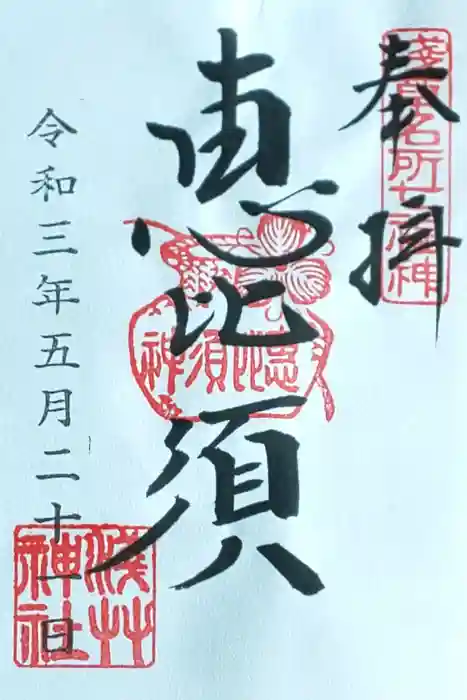 奉拝
浅草名所七福神
恵比須
恵比須神
令和三年五月二十一日
浅草神社